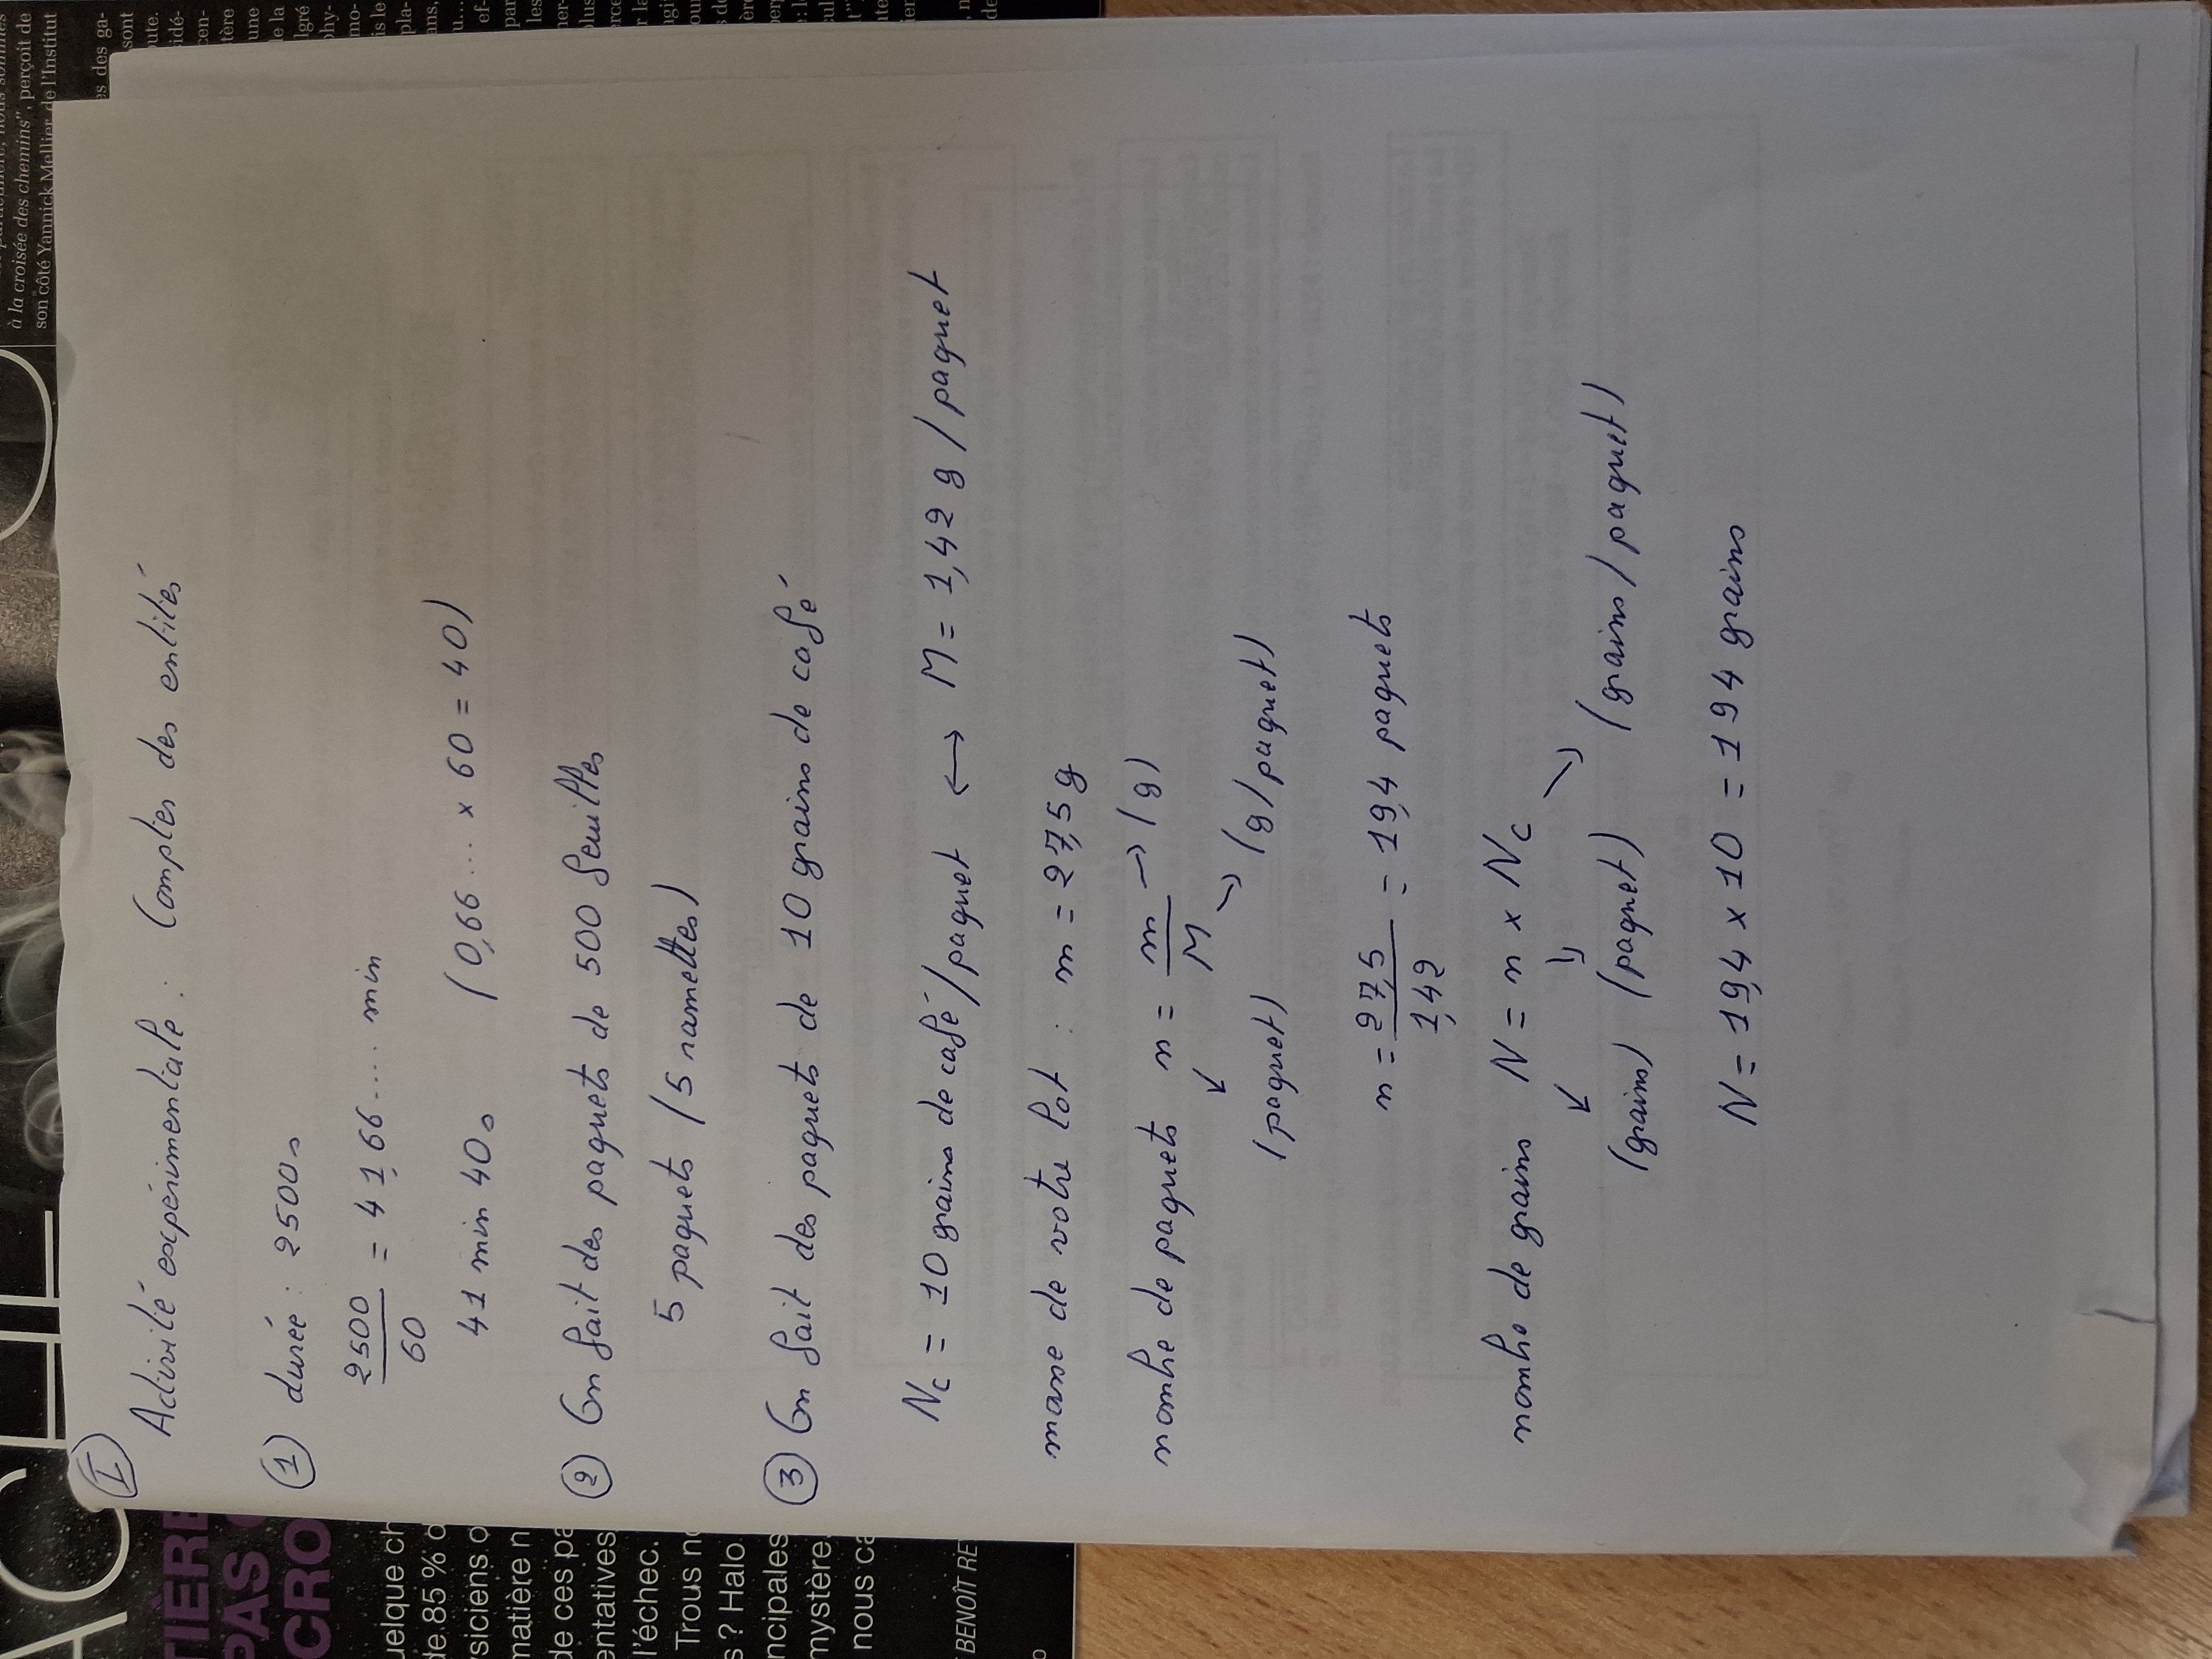 I
Activité expérimentale : Compter des entités
1 durée : 2500 s
2500
60
= 41,66.... min
41 min 40 s (0,66... × 60 = 40)
2 On fait des paquets de 500 feuilles
5 paquets (5 ramettes)
3 On fait des paquets de 10 grains de café
Nc = 10 grains de café/paquet ↔ M = 1,42 g/paquet
masse de votre lot : m = 27,5 g
nombre de paquets n = m/M → (g)
(paquet) (g/paquet)
n = 27,5/1,42 = 19,4 paquets
nombre de grains N = n × Nc
(grains) (paquet) (grains/paquet)
N = 19,4 × 10 = 194 grains
à la croisée des chemins", perçoit de
son côté Yannick Mellier, de l'Institut
TIÈRE
PAS
CRO
de 85 %
matière n
de ces pa
entatives
l'échec.
Trous n
s ? Halo
ncipales
mystère
nous ca
BENOÎT RE